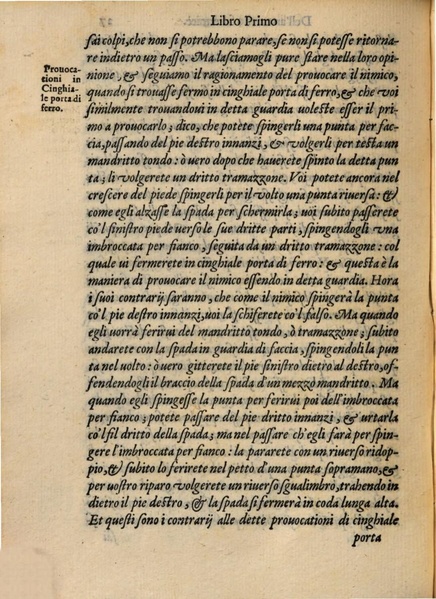 Libro Primo
sai colpi, che non si potrebbono parare, se non si potesse ritorna-
re indietro un passo. Ma lasciamogli pure stare nella loro opi-
nione, & seguiamo il ragionamento del provocare il nimico,
quando si trouasse fermo in cinghiale porta di ferro, & che voi
similmente trouandoui in detta guardia voleste esser il pri-
mo a prouocarlo; dico, che potete spingerli una punta per fac-
cia, passando del pie destro innanzi, & volgerli per testa un
mandritto tondo: ò uero dopo che hauerete spinto la detta pun
ta; li volgerete un dritto tramazzone. Voi potete ancora nel
crescere del piede spingerli per il volto una punta riuersa: &
come egli alzasse la spada per schermirla; uoi subito passerete
co'l sinistro piede verso le sue dritte parti, spingendogli una
imbroccata per fianco, seguita da un dritto tramazzone: col
quale ui fermerete in cinghiale porta di ferro: & questa è la
maniera di prouocare il nimico essendo in detta guardia. Hora
i suoi contrarij saranno, che come il nimico spingerà la punta
co'l pie destro innanzi, uoi la schiferete co'l falso. Ma quando
egli uorrà ferirui del mandritto tondo, ò tramazzone; subito
andarete con la spada in guardia di faccia, spingendoli la pun
ta nel volto: ò uero gitterete il pie sinistro dietro al destro, of-
fendendogli il braccio della spada d'un mezzo mandritto. Ma
quando egli spingesse la punta per ferirui poi dell'imbroccata
per fianco; potete passare del pie dritto innanzi, & urtarla
co'l fil dritto della spada; ma nel passare ch'egli farà per spin-
gere l'imbroccata per fianco: la pararete con un riuerso ridop-
pio, & subito lo ferirete nel petto d'una punta sopramano, &
per uostro riparo volgerete un riuerso sgualimbro, trahendo in
dietro il pie destro, & la spada si fermerà in coda lunga alta.
Et questi sono i contrarij alle dette prouocationi di cinghiale
porta
Prouoca-
tioni in
Cinghia-
le porta di
ferro.